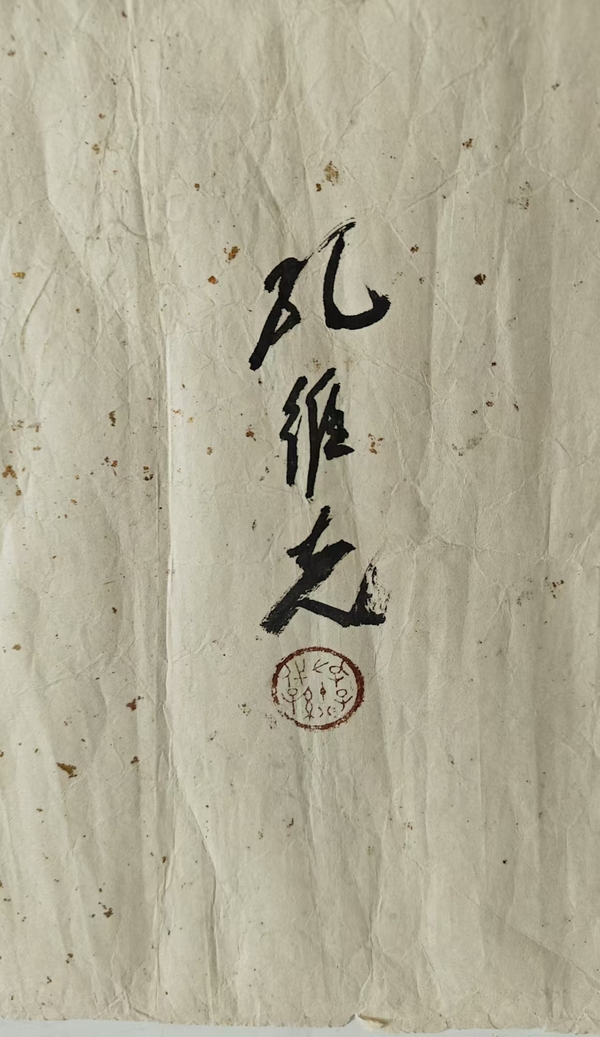 孔维克